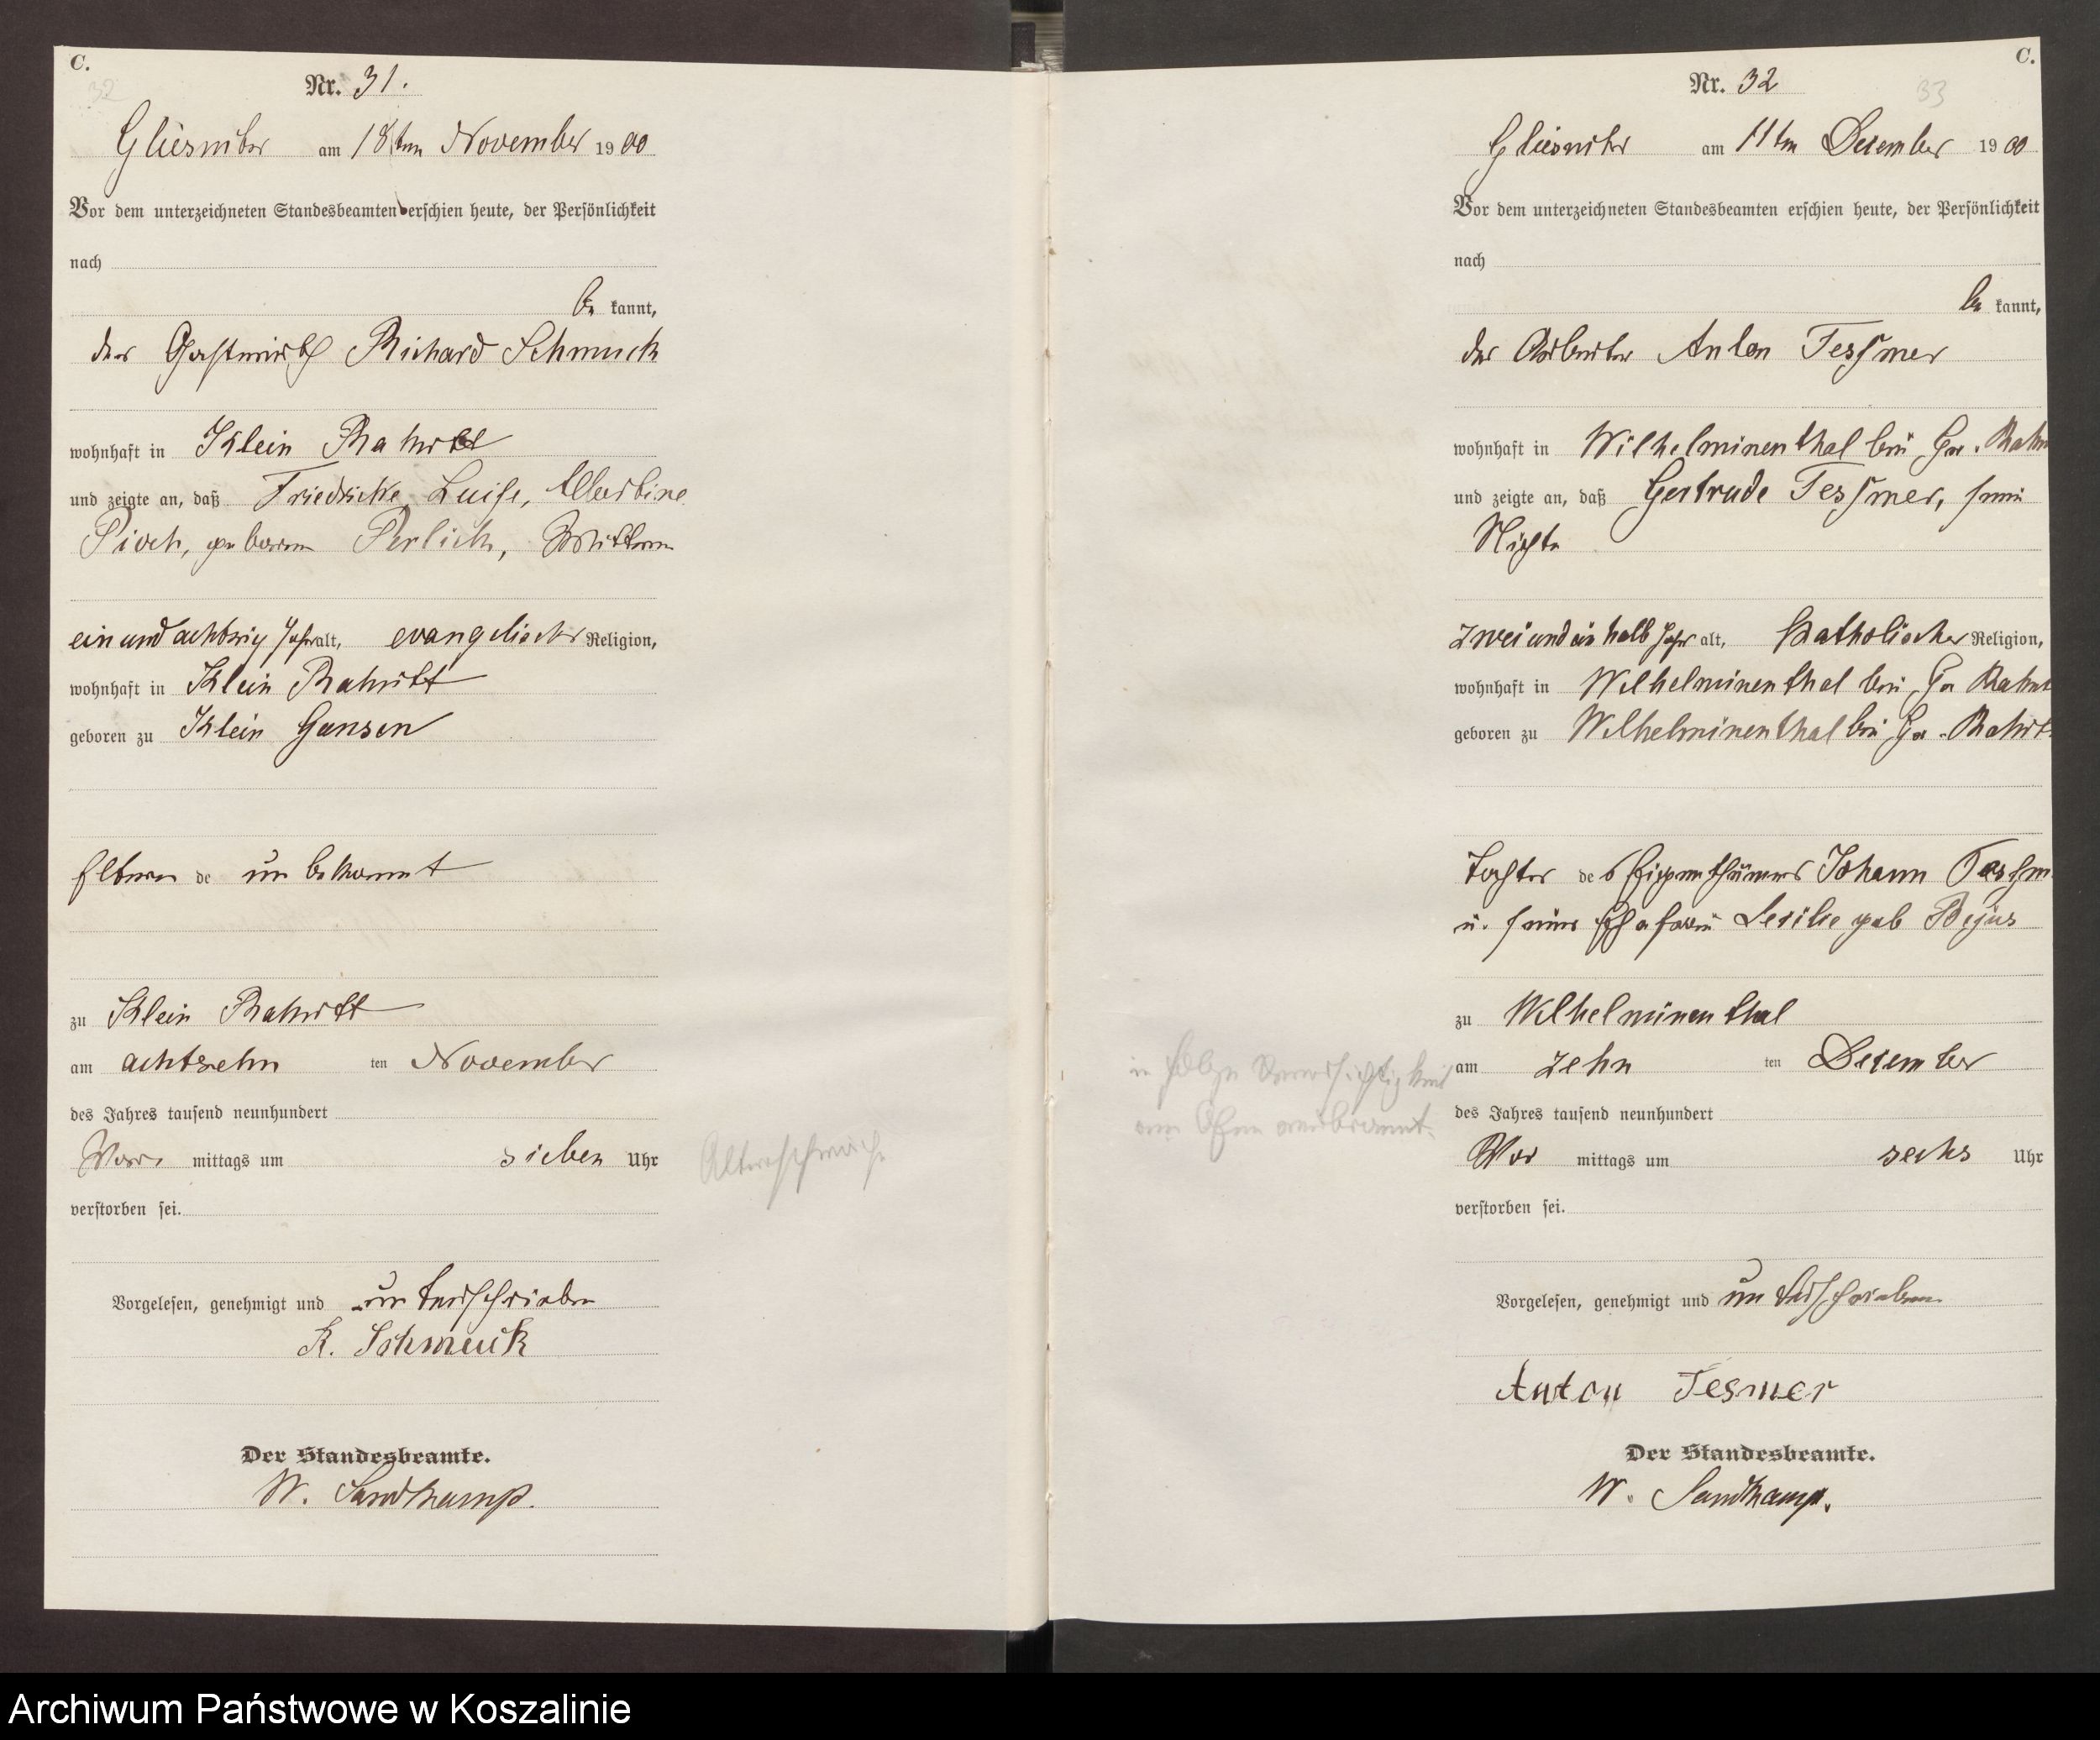 C.
32
Nr. 31.
Gliesnitz am 18ten November 1900
Vor dem unterzeichneten Standesbeamten erschien heute, der Persönlichkeit
nach
be kannt,
der Gastwirth Richard Schmuck
wohnhaft in Klein Rakitt
und zeigte an, daß Friedricke, Luise, Albertine
Pioch, geborene Perlick, Wittwe
ein und achtzig Jahr alt, evangelischer Religion,
wohnhaft in Klein Rakitt
geboren zu Klein Gansen
Eltern de unbekannt
zu Klein Rakitt
am achtzehn ten November
des Jahres tausend neunhundert
Vor mittags um sieben Uhr
verstorben sei.
Altersschwäche
Vorgelesen, genehmigt und unterschrieben
R. Schmuck
Der Standesbeamte.
W. Sandkamp.
C.
33
Nr. 32
Gliesnitz am 11ten Dezember 1900
Vor dem unterzeichneten Standesbeamten erschien heute, der Persönlichkeit
nach
be kannt,
der Arbeiter Anton Tessmer
wohnhaft in Wilhelminenthal bei Gr. Rak
und zeigte an, daß Gertrude Tessmer, seine
Nichte
zwei und ein halb Jahr alt, katholischer Religion,
wohnhaft in Wilhelminenthal bei Gr Rakit
geboren zu Wilhelminenthal bei Gr. Rakitt
Tochter des Eigenthümers Johann Tessm
u. seiner Ehefrau Cecilie geb
zu Wilhelminenthal
am zehn ten Dezember
des Jahres tausend neunhundert
Vor mittags um sechs Uhr
verstorben sei.
in Folge Unvorsichtigkeit
am Ofen verbrannt.
Vorgelesen, genehmigt und unterschrieben
Anton Tesmer
Der Standesbeamte.
W. Sandkamp.
Archiwum Państwowe w Koszalinie